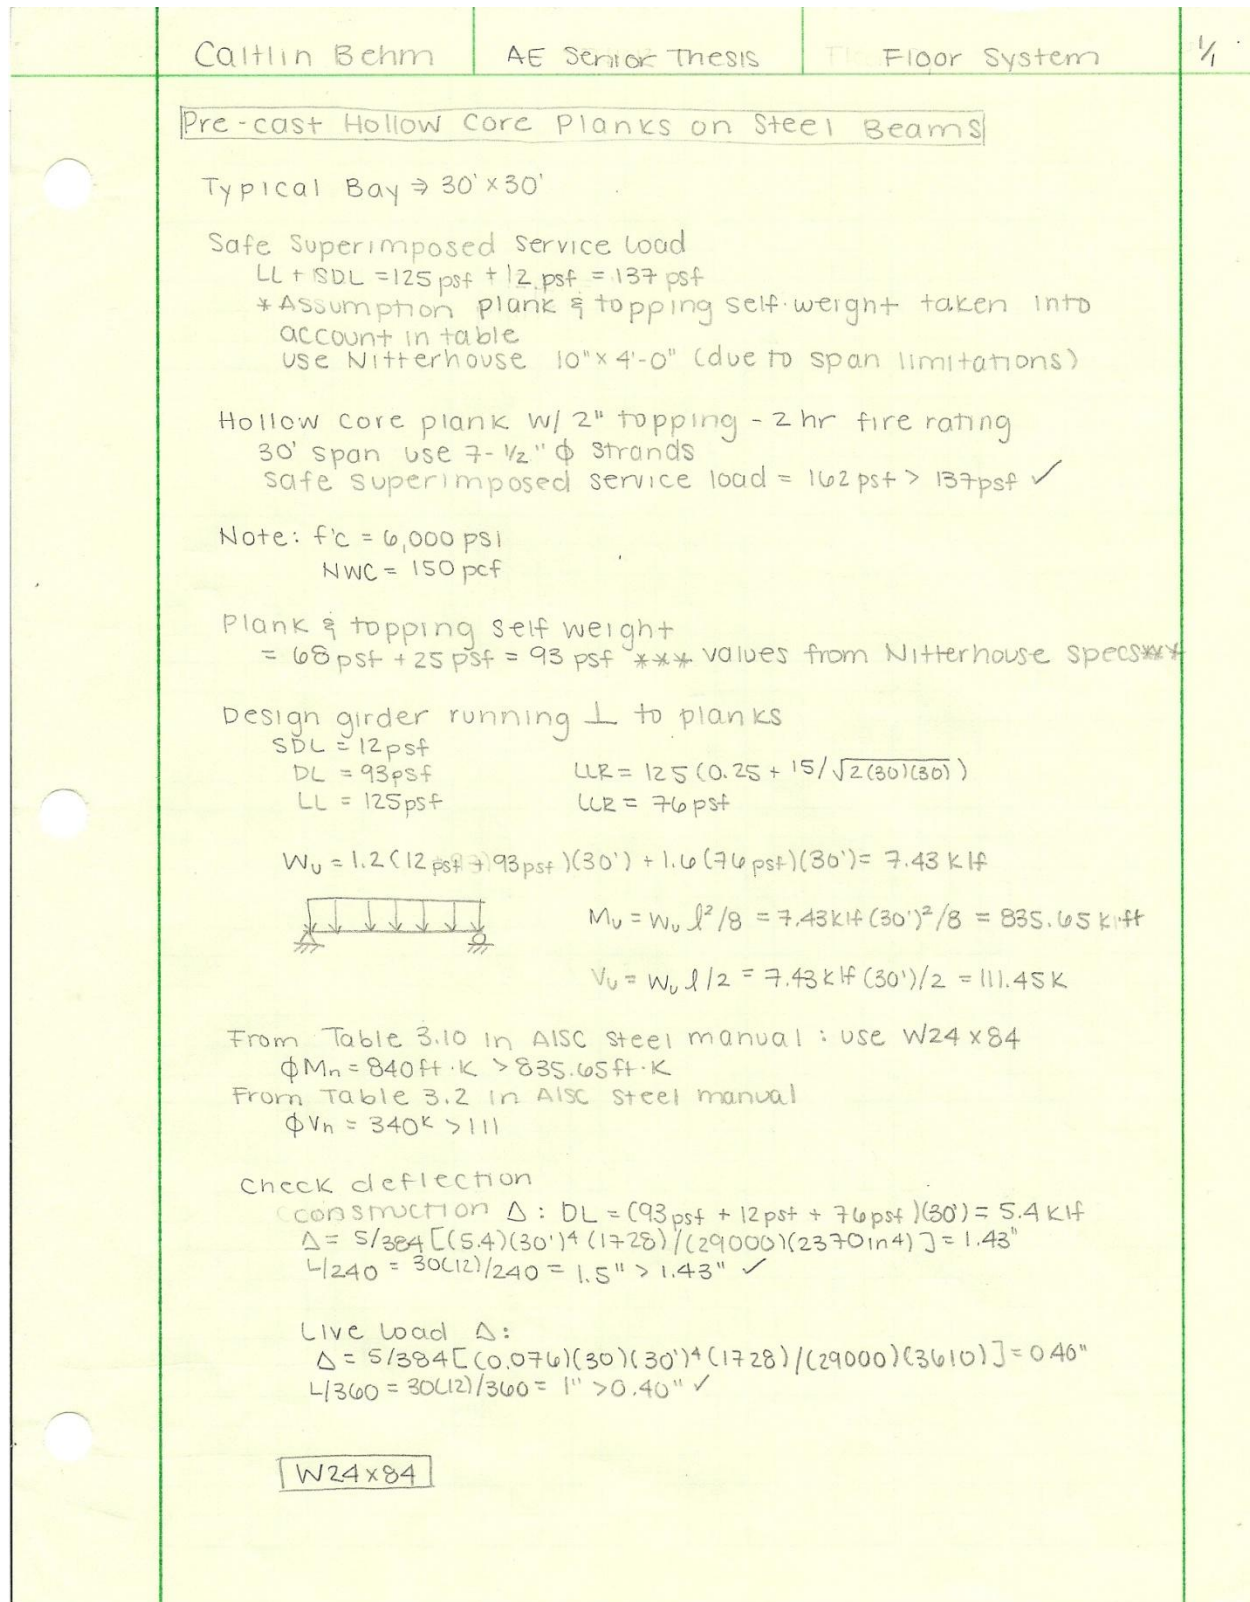 Caitlin Behm AE Senior Thesis Floor System 1/1
Pre-cast Hollow Core Planks on Steel Beams
Typical Bay ⇒ 30' × 30'
Safe Superimposed Service Load
LL + SDL = 125 psf + 12 psf = 137 psf
* Assumption plank & topping self-weight taken into
account in table
use Nitterhouse 10" × 4'-0" (due to span limitations)
Hollow core plank w/ 2" topping - 2 hr fire rating
30' span use 7- 1/2" ϕ strands
safe superimposed service load = 162 psf > 137 psf ✓
Note: f'c = 6,000 psi
NWC = 150 pcf
Plank & topping self weight
= 68 psf + 25 psf = 93 psf *** values from Nitterhouse specs***
Design girder running ⊥ to planks
SDL = 12 psf
DL = 93 psf LLR = 125 (0.25 + 15/√2(30)(30))
LL = 125 psf LLR = 76 psf
Wu = 1.2 (12 psf + 93 psf)(30') + 1.6 (76 psf)(30') = 7.43 klf
Mu = Wu l²/8 = 7.43 klf (30')²/8 = 835.65 k·ft
Vu = Wu l/2 = 7.43 klf (30')/2 = 111.45 K
From Table 3.10 in AISC steel manual : use W24 x 84
ϕMn = 840 ft·K > 835.65 ft·K
From Table 3.2 in AISC steel manual
ϕVn = 340 K > 111
Check deflection
construction Δ : DL = (93 psf + 12 psf + 76 psf)(30') = 5.4 klf
Δ = 5/384 [(5.4)(30')⁴ (1728) / (29000)(2370 in4)] = 1.43"
L/240 = 30(12)/240 = 1.5" > 1.43" ✓
Live load Δ:
Δ = 5/384 [(0.076)(30)(30')⁴ (1728) / (29000)(3610)] = 0.40"
L/360 = 30(12)/360 = 1" > 0.40" ✓
W24 x 84